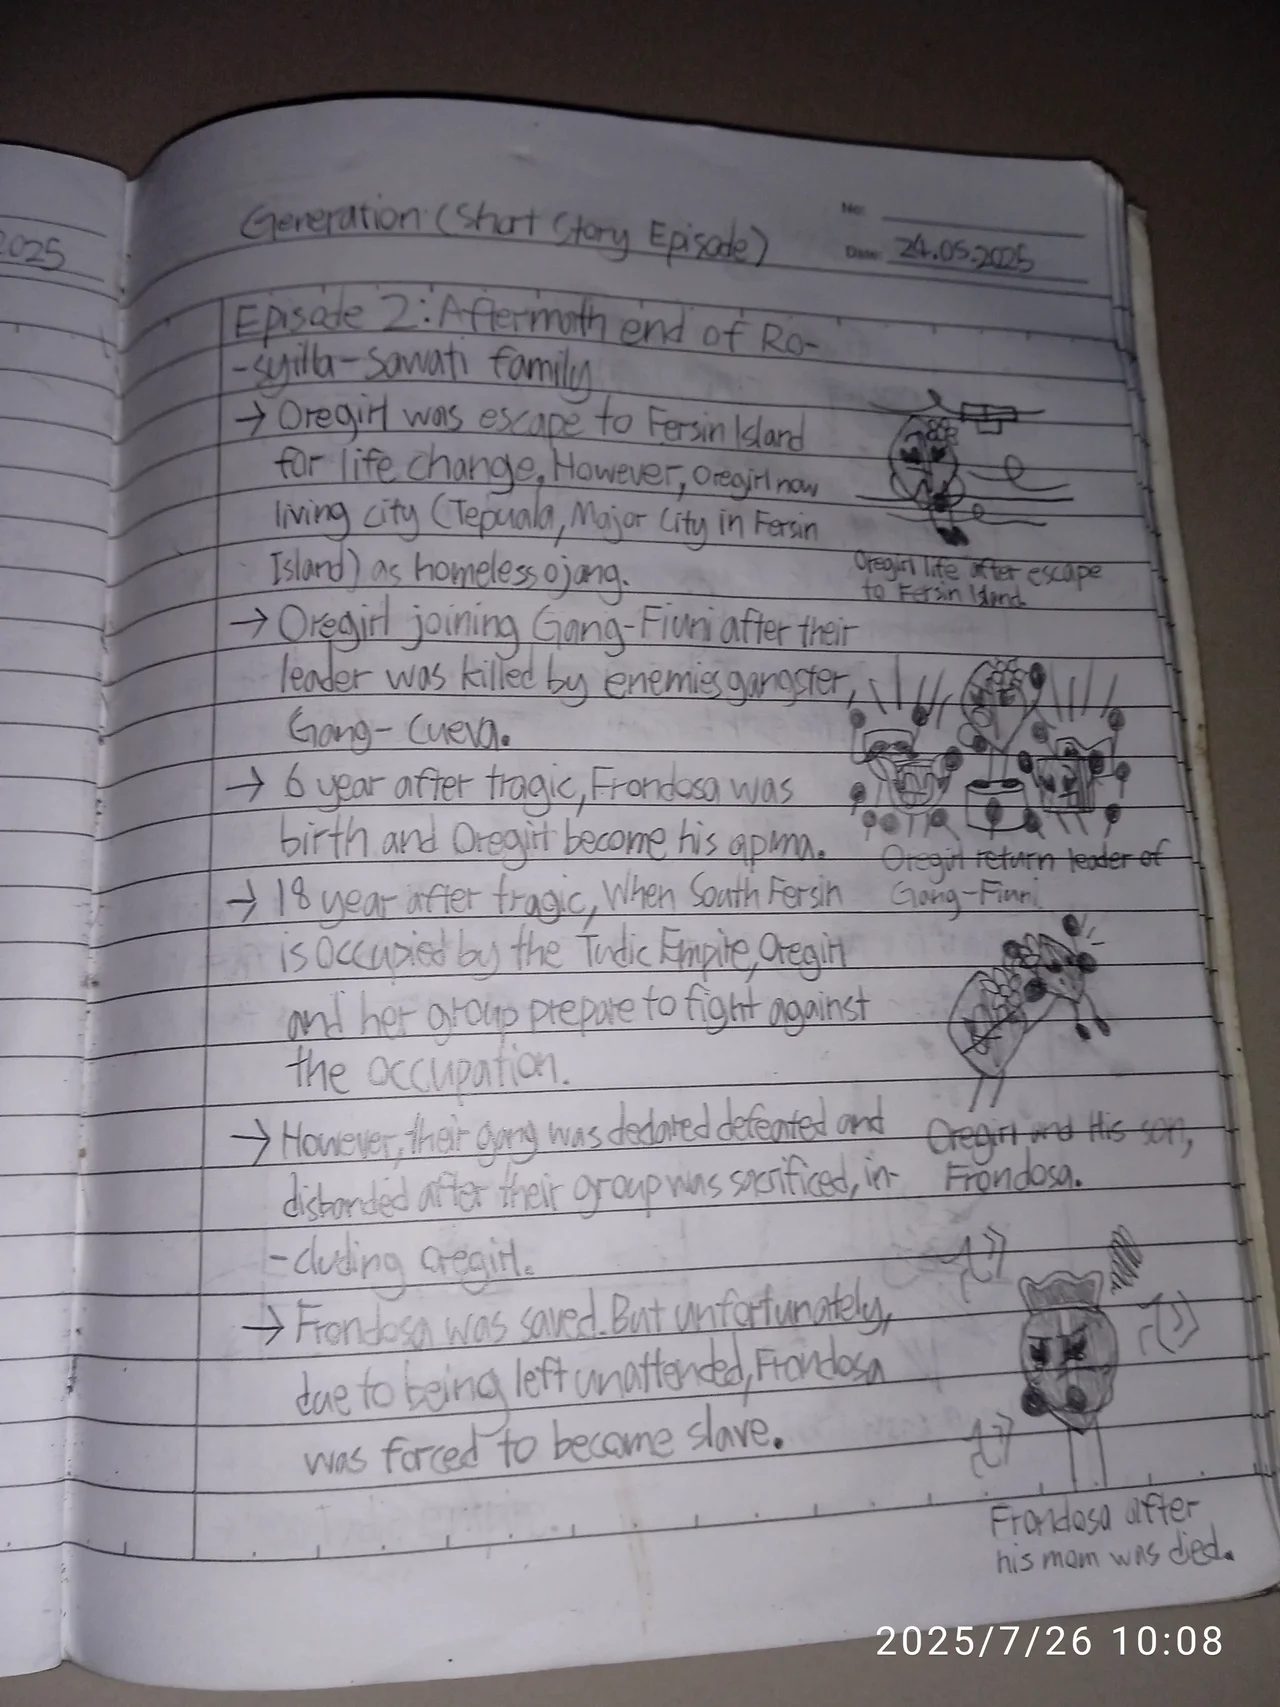 2025
Generation (Short Story Episode)
No:
Date: 24.05.2025
Episode 2: Aftermath end of Ro-
-syilla-Sawati family
→ Oregirl was escape to Fersin Island
for life change. However, Oregirl now
living city (Tepuala, Major City in Fersin
Island) as homeless ojang.
Oregirl life after escape
to Fersin Island.
→ Oregirl joining Gang-Fiuni after their
leader was killed by enemies gangster,
Gang-Cueva.
→ 6 year after tragic, Frondosa was
birth and Oregirl become his apma.
Oregirl return leader of
Gang-Fiuni.
→ 18 year after tragic, When South Fersin
is occupied by the Tudic Empire, Oregirl
and her group prepare to fight against
the occupation.
Oregirl and His son,
Frondosa.
→ However, their gang was declared defeated and
disbanded after their group was sacrificed, in-
-cluding Oregirl.
→ Frondosa was saved. But unfortunately,
due to being left unattended, Frondosa
was forced to become slave.
Frondosa after
his mom was died.
2025/7/26 10:08